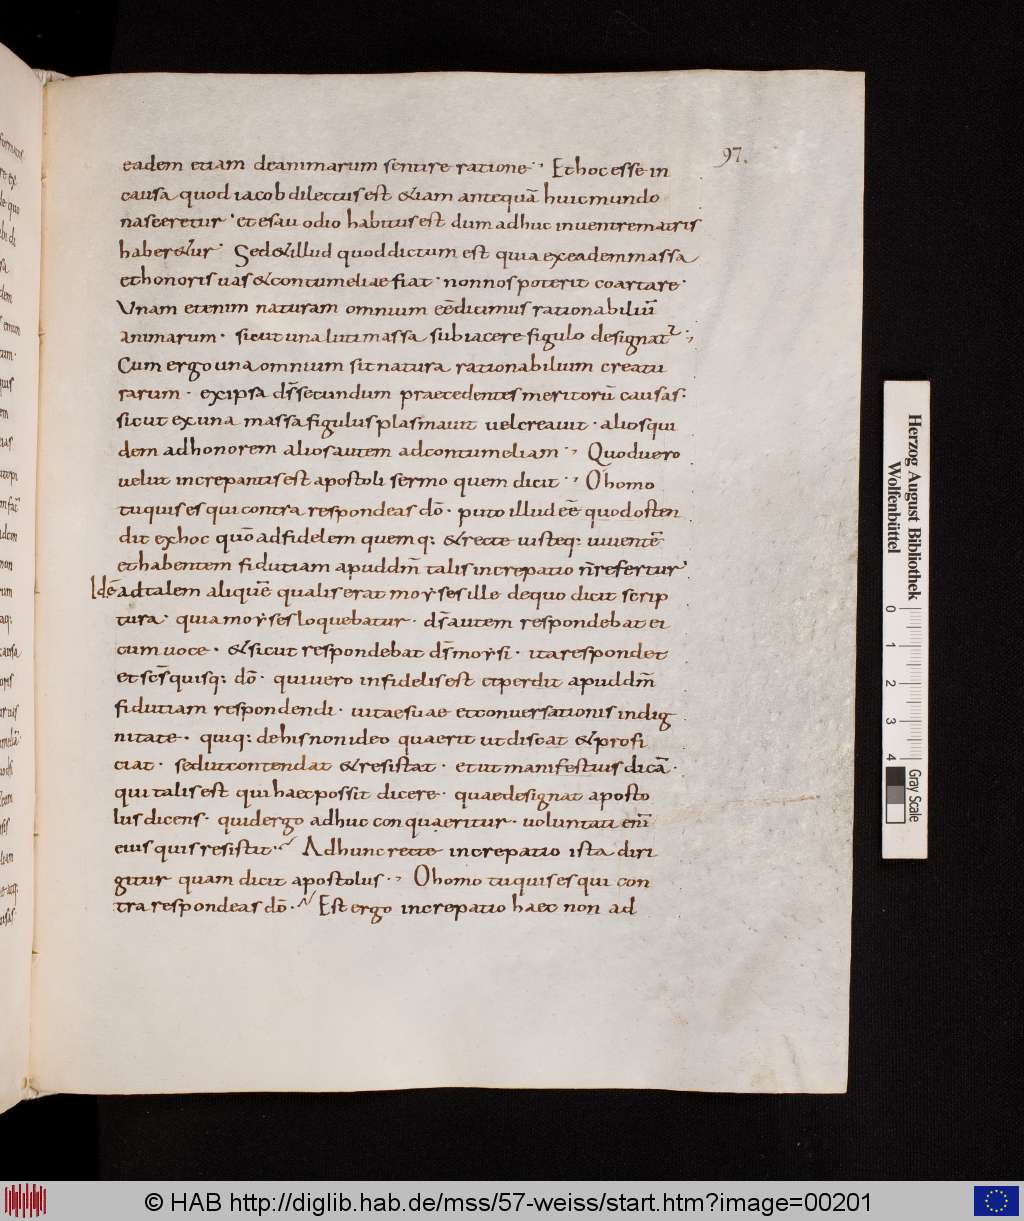 97.
eadem etiam deanimarum sentire ratione·, Ethocesse in
causa quod iacob dilectus est &iam antequā huicmundo
nasceretur· et esau odio habitus est dum adhuc inventrematris
haber&ur· Sed&illud quoddictum est quia exeademmassa
ethonoris uas &contumeliae fiat· nonnos poterit coartare·
Unam etenim naturam omnium eēdicimus rationabiliū
animarum· sicut una luti massa subiacere figulo designat̃·,
Cum ergo una omnium sit natura rationabilium creatu
rarum· exipsa d̄s secundum praecedentes meritorū causas·
sicut ex una massa figulus plasmauit uelcreauit· aliosqui
dem adhonorem alios autem adcontumeliam·, Quoduero
uelut increpantis est apostoli sermo quem dicit·, O homo
tuquis es qui contra respondeas dō· puto illud eē quod osten
dit exhoc quō adfidelem quemq: &recte uisteq: uiuentē
ethabentem fidutiam apuddm̄ talis increpatio n̄refertur·
Idē adtalem aliquē qualis erat moyses ille dequo dicit scrip
tura· quia moyses loquebatur· d̄s autem respondebat ei
cum uoce· &sicut respondebat d̄s moysi· ita respondet
et sc̄s quisq: dō· qui uero infidelis est etperdit apuddm̄
fidutiam respondendi· uitae suae etconuersationis indig
nitate· quiq: dehis non ideo quaerit ut discat &profi
ciat· sedutcontendat &resistat· et ut manifestius dicā·
qui talis est qui haec possit dicere· quae designat aposto
lus dicens· quidergo adhuc conquaeritur· uoluntati enī
eius quis resistit· Adhunc recte increpatio ista diri
gitur quam dicit apostolus·, O homo tuquis es qui con
tra respondeas dō· Est ergo increpatio haec non ad
Herzog August Bibliothek
Wolfenbüttel
0 1 2 3 4
Gray Scale
© HAB http://diglib.hab.de/mss/57-weiss/start.htm?image=00201